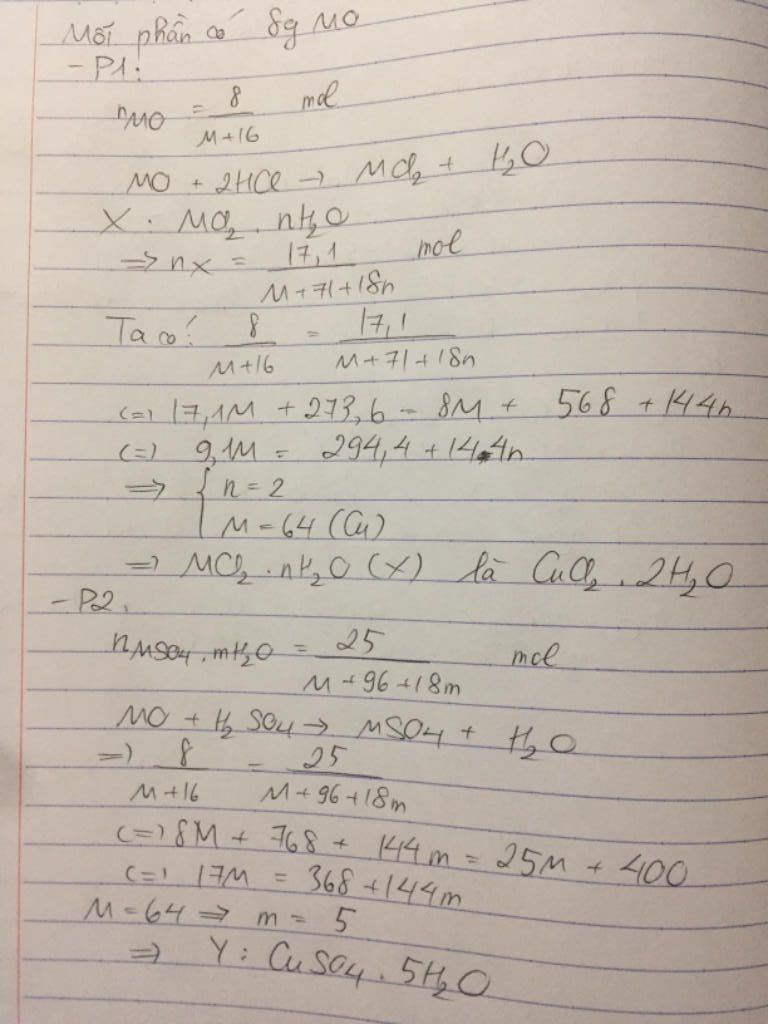 Mỗi phần có 8g MO
- P1:
nMO = 8/(M+16) mol
MO + 2HCl → MCl₂ + H₂O
X : MCl₂ . nH₂O
=> nX = 17,1/(M+71+18n) mol
Ta có: 8/(M+16) = 17,1/(M+71+18n)
(=) 17,1M + 273,6 = 8M + 568 + 144n
(=) 9,1M = 294,4 + 144n
=> { n = 2
M = 64 (Cu)
=> MCl₂ . nH₂O (X) là CuCl₂ . 2H₂O
- P2.
nMSO₄.mH₂O = 25/(M+96+18m) mol
MO + H₂SO₄ → MSO₄ + H₂O
=) 8/(M+16) = 25/(M+96+18m)
(=) 8M + 768 + 144m = 25M + 400
(=) 17M = 368 + 144m
M = 64 => m = 5
=> Y : CuSO₄ . 5H₂O